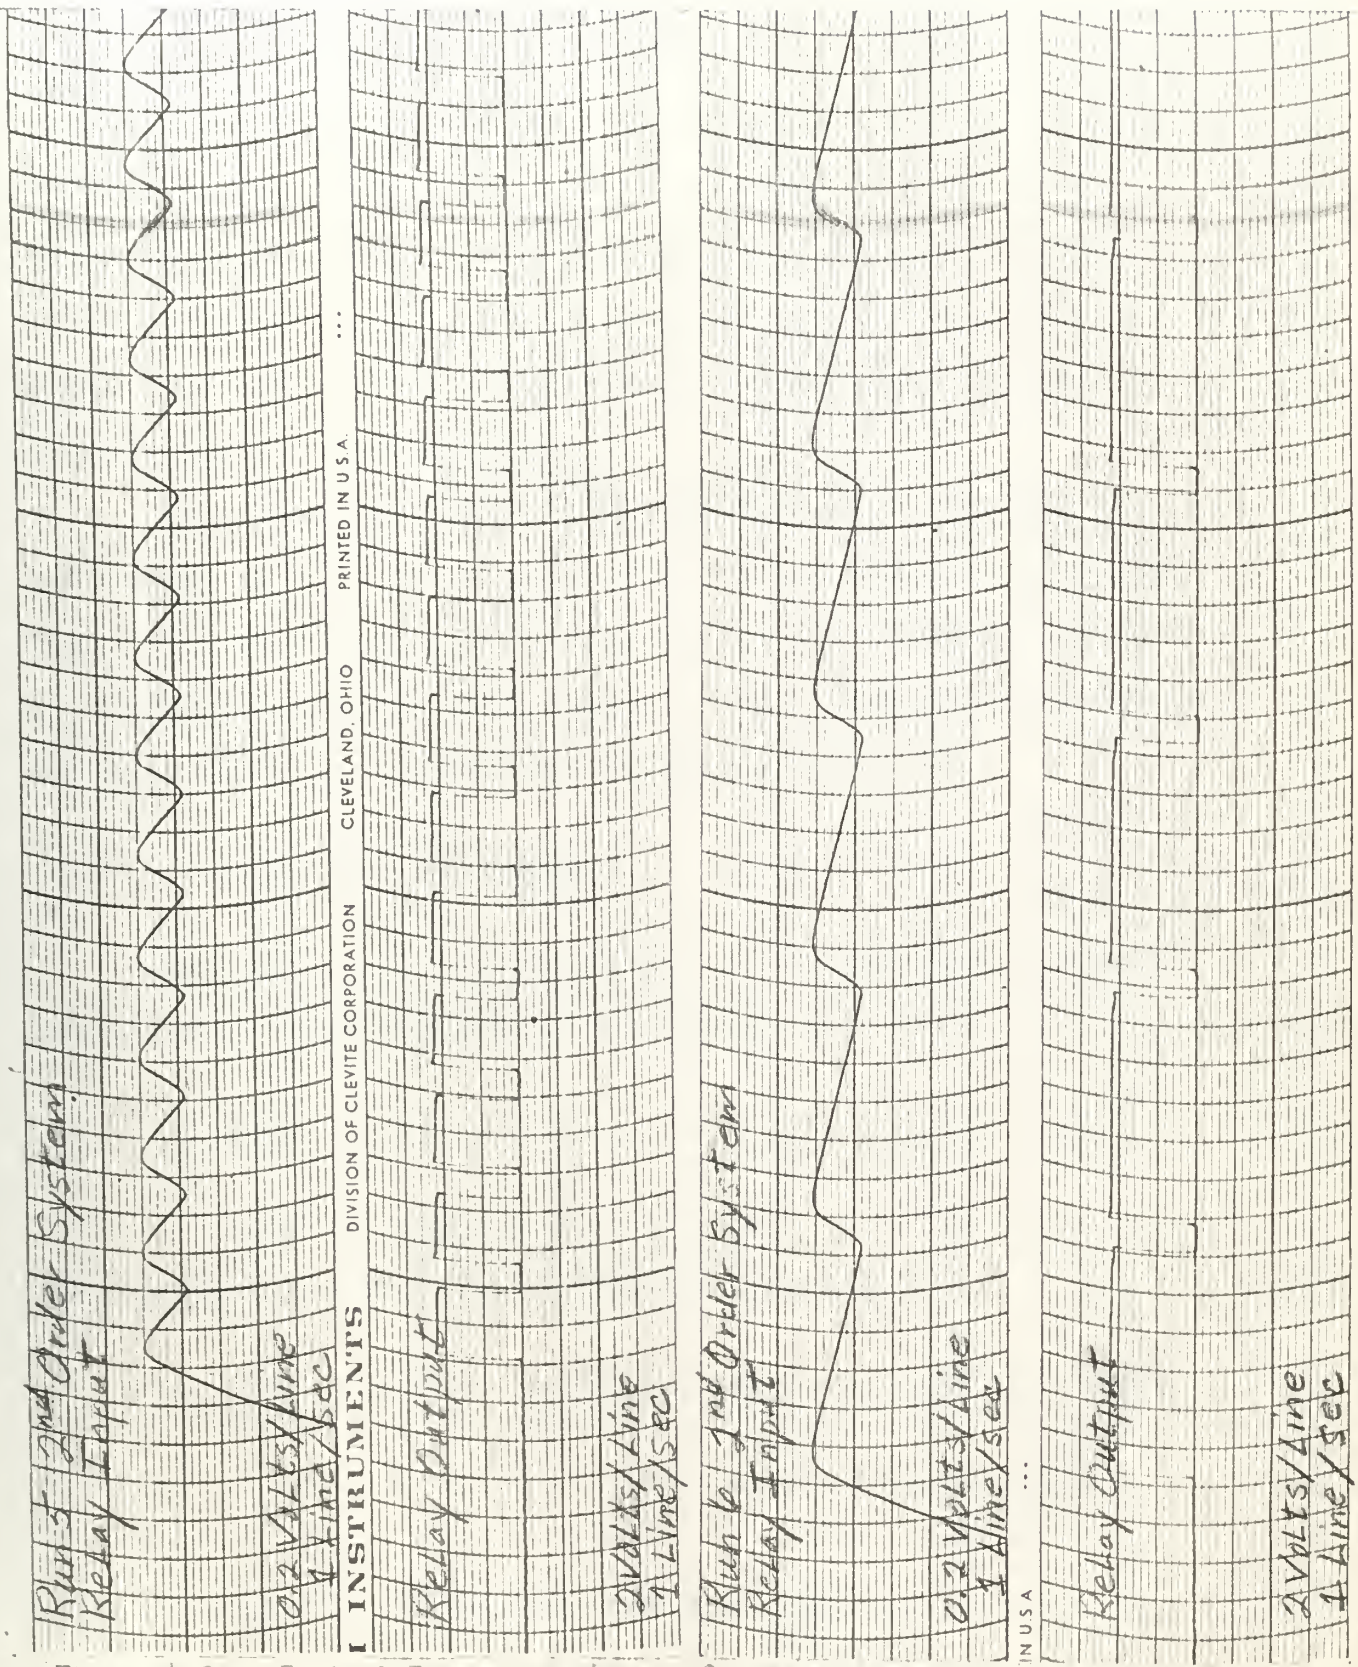 Run 5 2nd Order System
Relay Input
0.2 Volts/Line
1 Line/Sec
I INSTRUMENTS DIVISION OF CLEVITE CORPORATION CLEVELAND, OHIO PRINTED IN U.S.A. ...
Relay Output
2 Volts/Line
1 Line/Sec
Run 6 2nd Order System
Relay Input
0.2 Volts/Line
1 Line/sec
IN USA ...
Relay Output
2 Volts/Line
1 Line/Sec